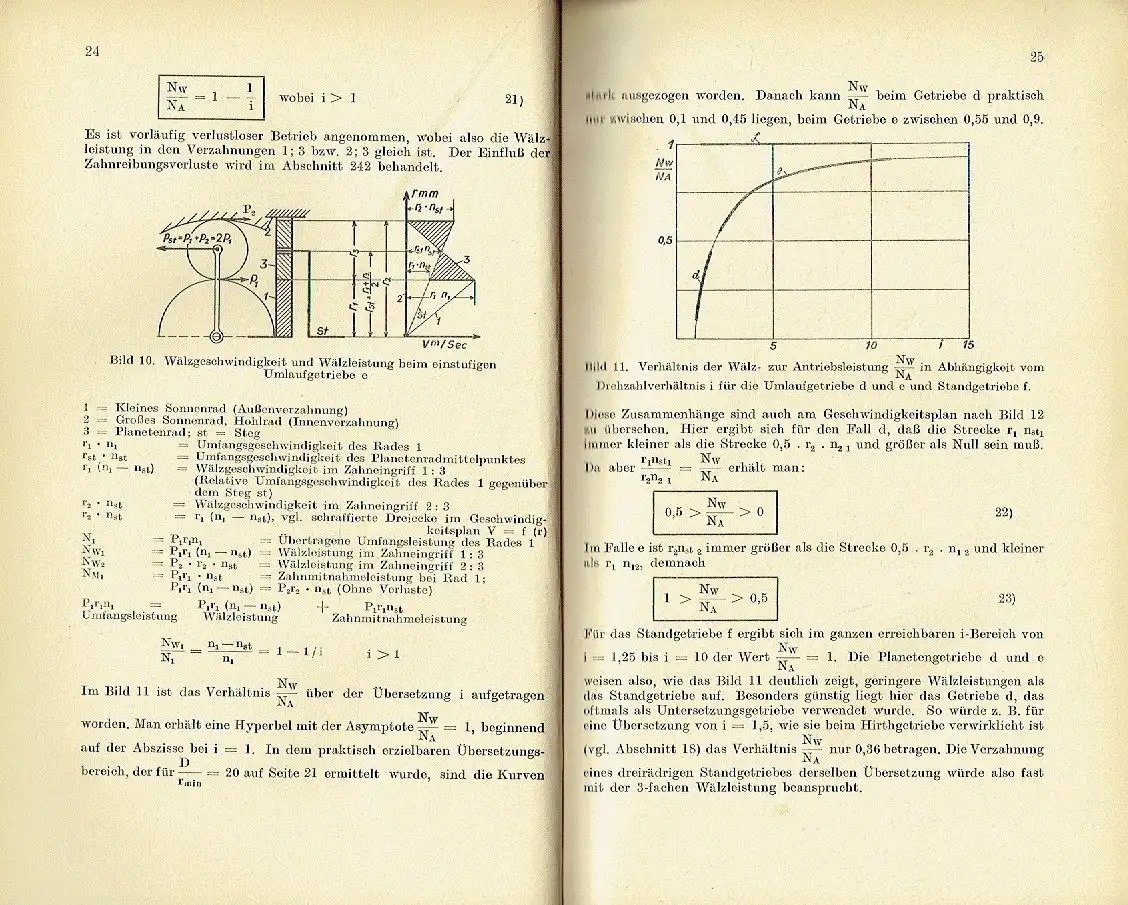 24
Nw/NA = 1 — 1/i wobei i > 1 21)
Es ist vorläufig verlustloser Betrieb angenommen, wobei also die Wälz-
leistung in den Verzahnungen 1; 3 bzw. 2; 3 gleich ist. Der Einfluß der
Zahnreibungsverluste wird im Abschnitt 242 behandelt.
P2
Pst=P1+P2=2P1
P1
2
3
1
St
r1
rst = (r1+r2)/2
r2
r mm
r2·nst
rst nst
r1·nst
3
2
r1 n1
St
1
V m/Sec
Bild 10. Wälzgeschwindigkeit und Wälzleistung beim einstufigen
Umlaufgetriebe e
1 = Kleines Sonnenrad (Außenverzahnung)
2 = Großes Sonnenrad, Hohlrad (Innenverzahnung)
3 = Planetenrad; st = Steg
r1 · n1 = Umfangsgeschwindigkeit des Rades 1
rst · nst = Umfangsgeschwindigkeit des Planetenradmittelpunktes
r1 (n1 — nst) = Wälzgeschwindigkeit im Zahneingriff 1 : 3
(Relative Umfangsgeschwindigkeit des Rades 1 gegenüber
dem Steg st)
r2 · nst = Wälzgeschwindigkeit im Zahneingriff 2 : 3
r2 · nst = r1 (n1 — nst), vgl. schraffierte Dreiecke im Geschwindig-
keitsplan V = f (r)
N1 = P1r1n1 = Übertragene Umfangsleistung des Rades 1
Nw1 = P1r1 (n1 — nst) = Wälzleistung im Zahneingriff 1 : 3
Nw2 = P2 · r2 · nst = Wälzleistung im Zahneingriff 2 : 3
NM1 = P1r1 · nst = Zahnmitnahmeleistung bei Rad 1;
P1r1 (n1 — nst) = P2r2 · nst (Ohne Verluste)
P1r1n1 = P1r1 (n1 — nst) + P1r1nst
Umfangsleistung Wälzleistung Zahnmitnahmeleistung
Nw1/N1 = (n1 — nst)/n1 = 1 — 1/i i > 1
Im Bild 11 ist das Verhältnis Nw/NA über der Übersetzung i aufgetragen
worden. Man erhält eine Hyperbel mit der Asymptote Nw/NA = 1, beginnend
auf der Abszisse bei i = 1. In dem praktisch erzielbaren Übersetzungs-
bereich, der für D/rmin = 20 auf Seite 21 ermittelt wurde, sind die Kurven
25
stark ausgezogen worden. Danach kann Nw/NA beim Getriebe d praktisch
nur zwischen 0,1 und 0,45 liegen, beim Getriebe e zwischen 0,55 und 0,9.
1
Nw/NA
0,5
f
e
d
5 10 i 15
Bild 11. Verhältnis der Wälz- zur Antriebsleistung Nw/NA in Abhängigkeit vom
Drehzahlverhältnis i für die Umlaufgetriebe d und e und Standgetriebe f.
Diese Zusammenhänge sind auch am Geschwindigkeitsplan nach Bild 12
zu übersehen. Hier ergibt sich für den Fall d, daß die Strecke r1 nst1
immer kleiner als die Strecke 0,5 . r2 . n2 1 und größer als Null sein muß.
Da aber r1nst1/r2n2 1 = Nw/NA erhält man:
0,5 > Nw/NA > 0 22)
Im Falle e ist r2nst 2 immer größer als die Strecke 0,5 . r2 . n1 2 und kleiner
als r1 n12, demnach
1 > Nw/NA > 0,5 23)
Für das Standgetriebe f ergibt sich im ganzen erreichbaren i-Bereich von
i = 1,25 bis i = 10 der Wert Nw/NA = 1. Die Planetengetriebe d und e
weisen also, wie das Bild 11 deutlich zeigt, geringere Wälzleistungen als
das Standgetriebe auf. Besonders günstig liegt hier das Getriebe d, das
oftmals als Untersetzungsgetriebe verwendet wurde. So würde z. B. für
eine Übersetzung von i = 1,5, wie sie beim Hirthgetriebe verwirklicht ist
(vgl. Abschnitt 18) das Verhältnis Nw/NA nur 0,36 betragen. Die Verzahnung
eines dreirädrigen Standgetriebes derselben Übersetzung würde also fast
mit der 3-fachen Wälzleistung beansprucht.